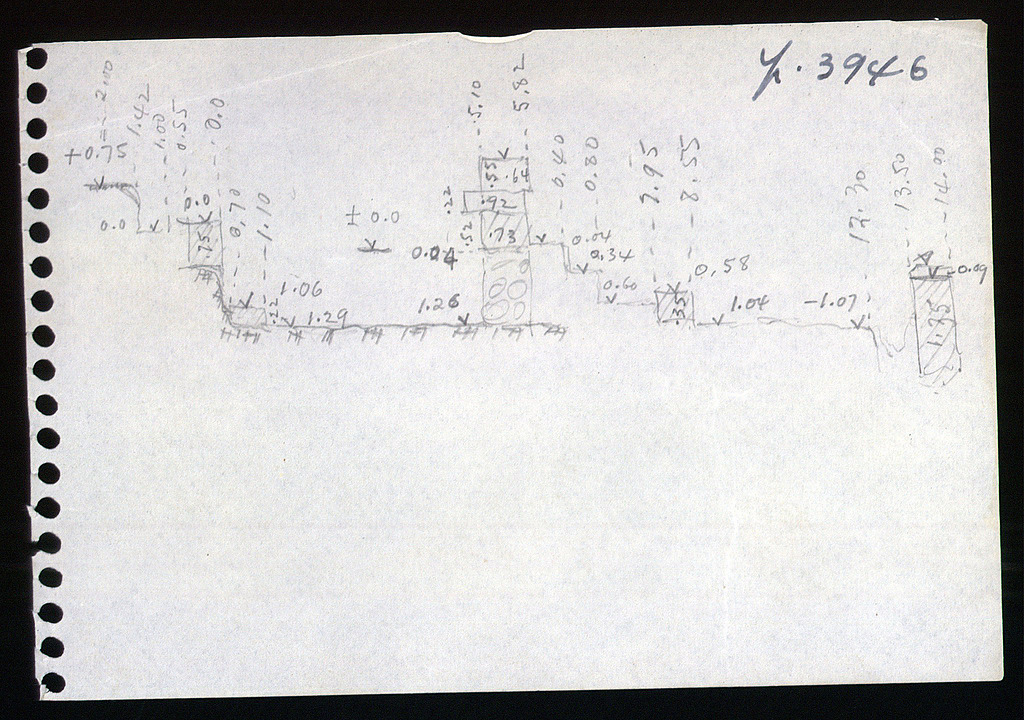 γ. 3946
2.00
1.42
1.00
0.55
0.0
5.10
5.82
0.40
0.80
7.95
8.55
12.30
13.50
14.00
+0.75
0.0
0.0
.75
0,70
1.10
± 0.0
.22
.55
.64
.92
.52
.73
0.04
0.04
0.34
0.60
0,58
.35
1.06
.22
1.29
1.26
1.04
-1.07
-0.09
1.35